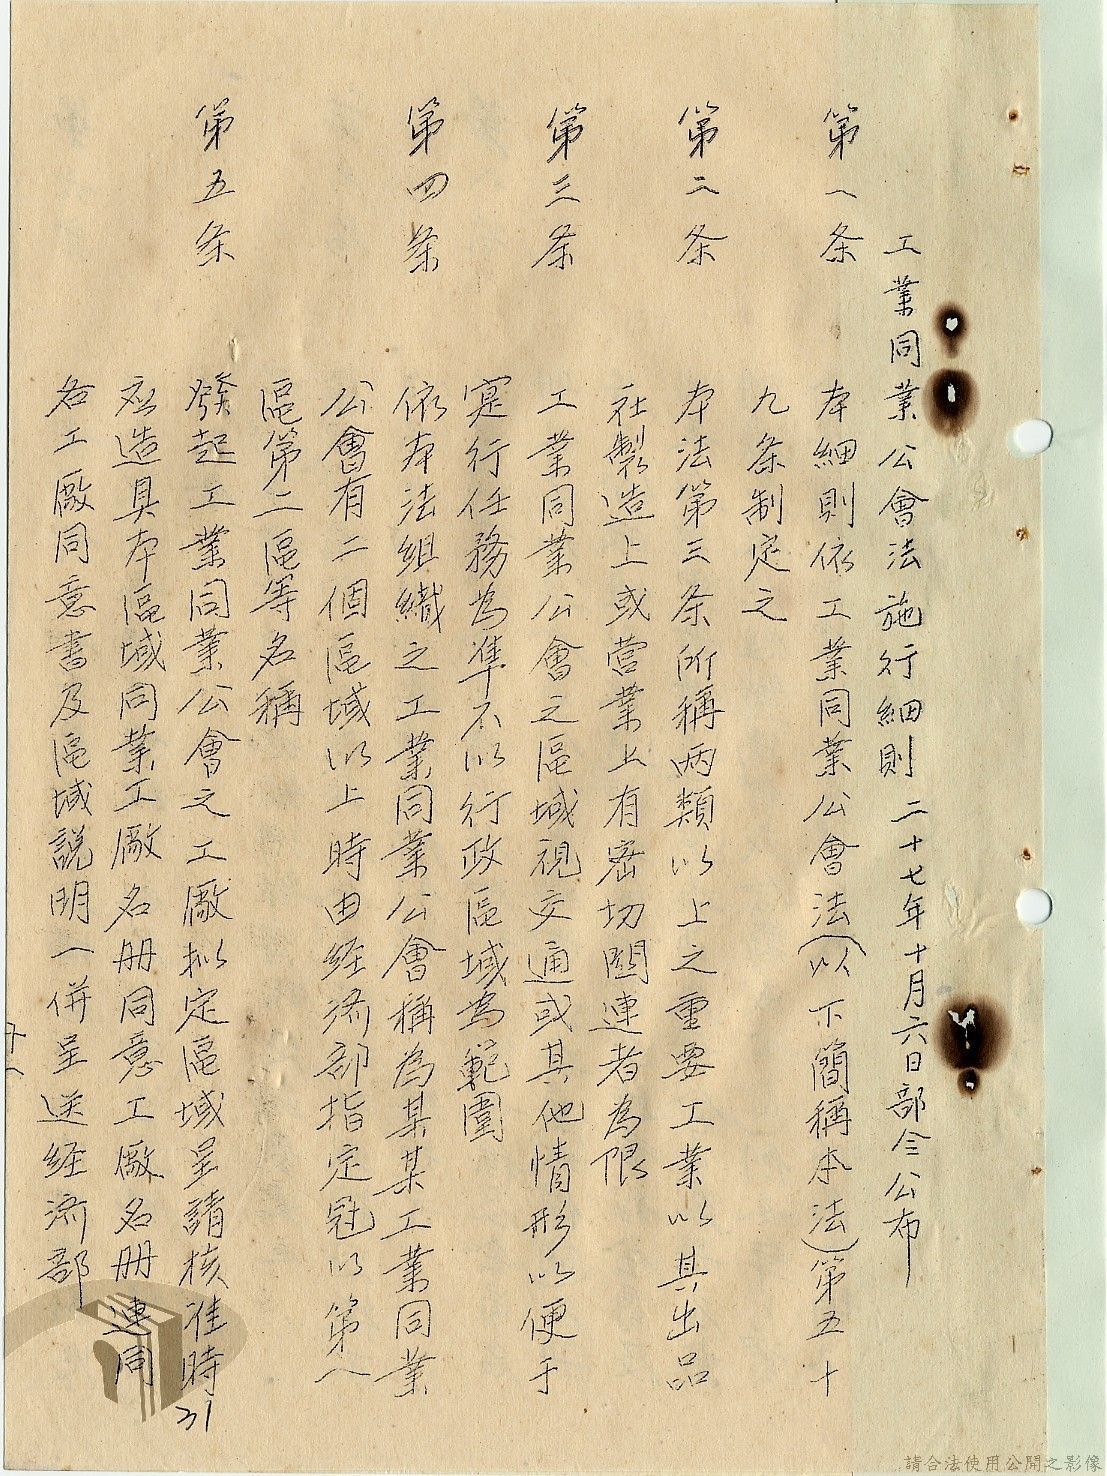 工業同業公會法施行細則 二十七年十月六日部令公布
第一条 本細則依工業同業公會法(以下簡稱本法)第五十
九条制定之
第二条 本法第三条所稱两類以上之重要工業以其出品
社製造上或营業上有密切關連者為限
第三条 工業同業公會之區域視交通或其他情形以便于
寔行任務為準不以行政區域為範圍
第四条 依本法組織之工業同業公會稱為某某工業同業
公會有二個區域以上時由经济部指定冠以第一
區第二區等名稱
第五条 發起工業同業公會之工廠拟定區域呈請核准時
应造具本區域同業工廠名册同意工廠名册連同
各工廠同意書及區域說明一併呈送经济部
31
十一
請合法使用公開之影像